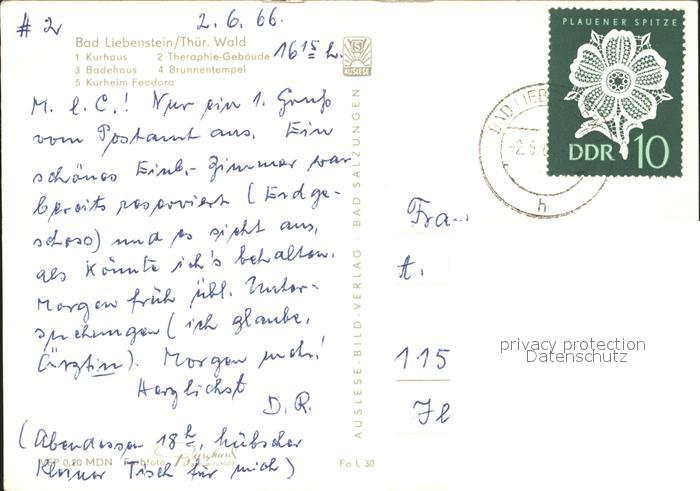 #2 2. 6. 66.
Bad Liebenstein/Thür. Wald
1 Kurhaus 2 Theraphie-Gebäude 16 15 h.
3 Badehaus 4 Brunnentempel
5 Kurheim Feodora
AUSLESE
M. l. C.! Nur ein 1. Gruß
vom Postamt aus. Ein
schönes Einb.-Zimmer war
bereits reserviert (Erdge-
schoss) und es sieht aus,
als könnte ich's behalten.
Morgen früh übl. Unter-
suchungen (ich glaube,
Ärztin). Morgen mehr!
Herzlichst
D. R.
(Abendessen 18 h, hübscher
kleiner Tisch für mich)
MDN 0,20 Farbfoto
Fo L 30
AUSLESE-BILD-VERLAG · BAD SALZUNGEN
PLAUENER SPITZE
DDR 10
BAD LIEBEN
-2.6.
h
Fra
t.
115
Jl
privacy protection
Datenschutz